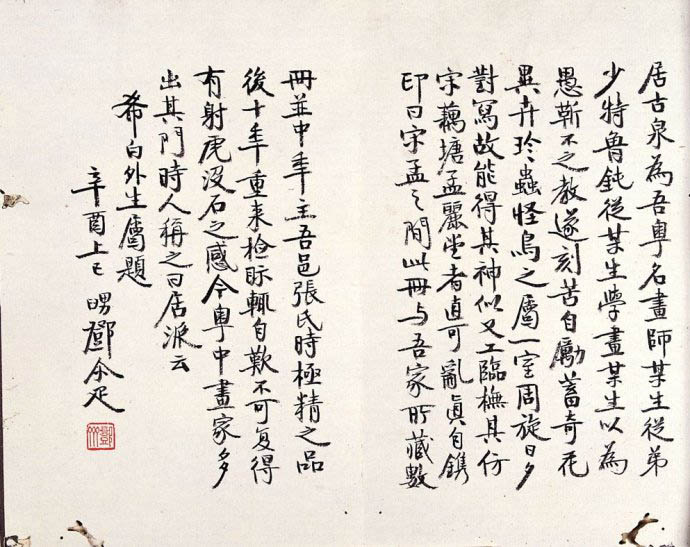 居古泉為吾粵名畫師某生從弟
少特魯鈍從某生學畫某生以為
愚靳不之教遂刻苦自勵蓄奇花
異卉珍蟲怪鳥之屬一室周旋日夕
對寫故能得其神似又工臨橅其仿
宋藕塘孟麗堂者直可亂真自鐫
印曰宋孟之間此冊与吾家所藏數
冊並中年主吾邑張氏時極精之品
後十年重来檢眎輒自歎不可复得
有射虎没石之感今粵中畫家多
出其門時人稱之曰居派云
希白外生屬題
辛酉上巳 鄧尒疋